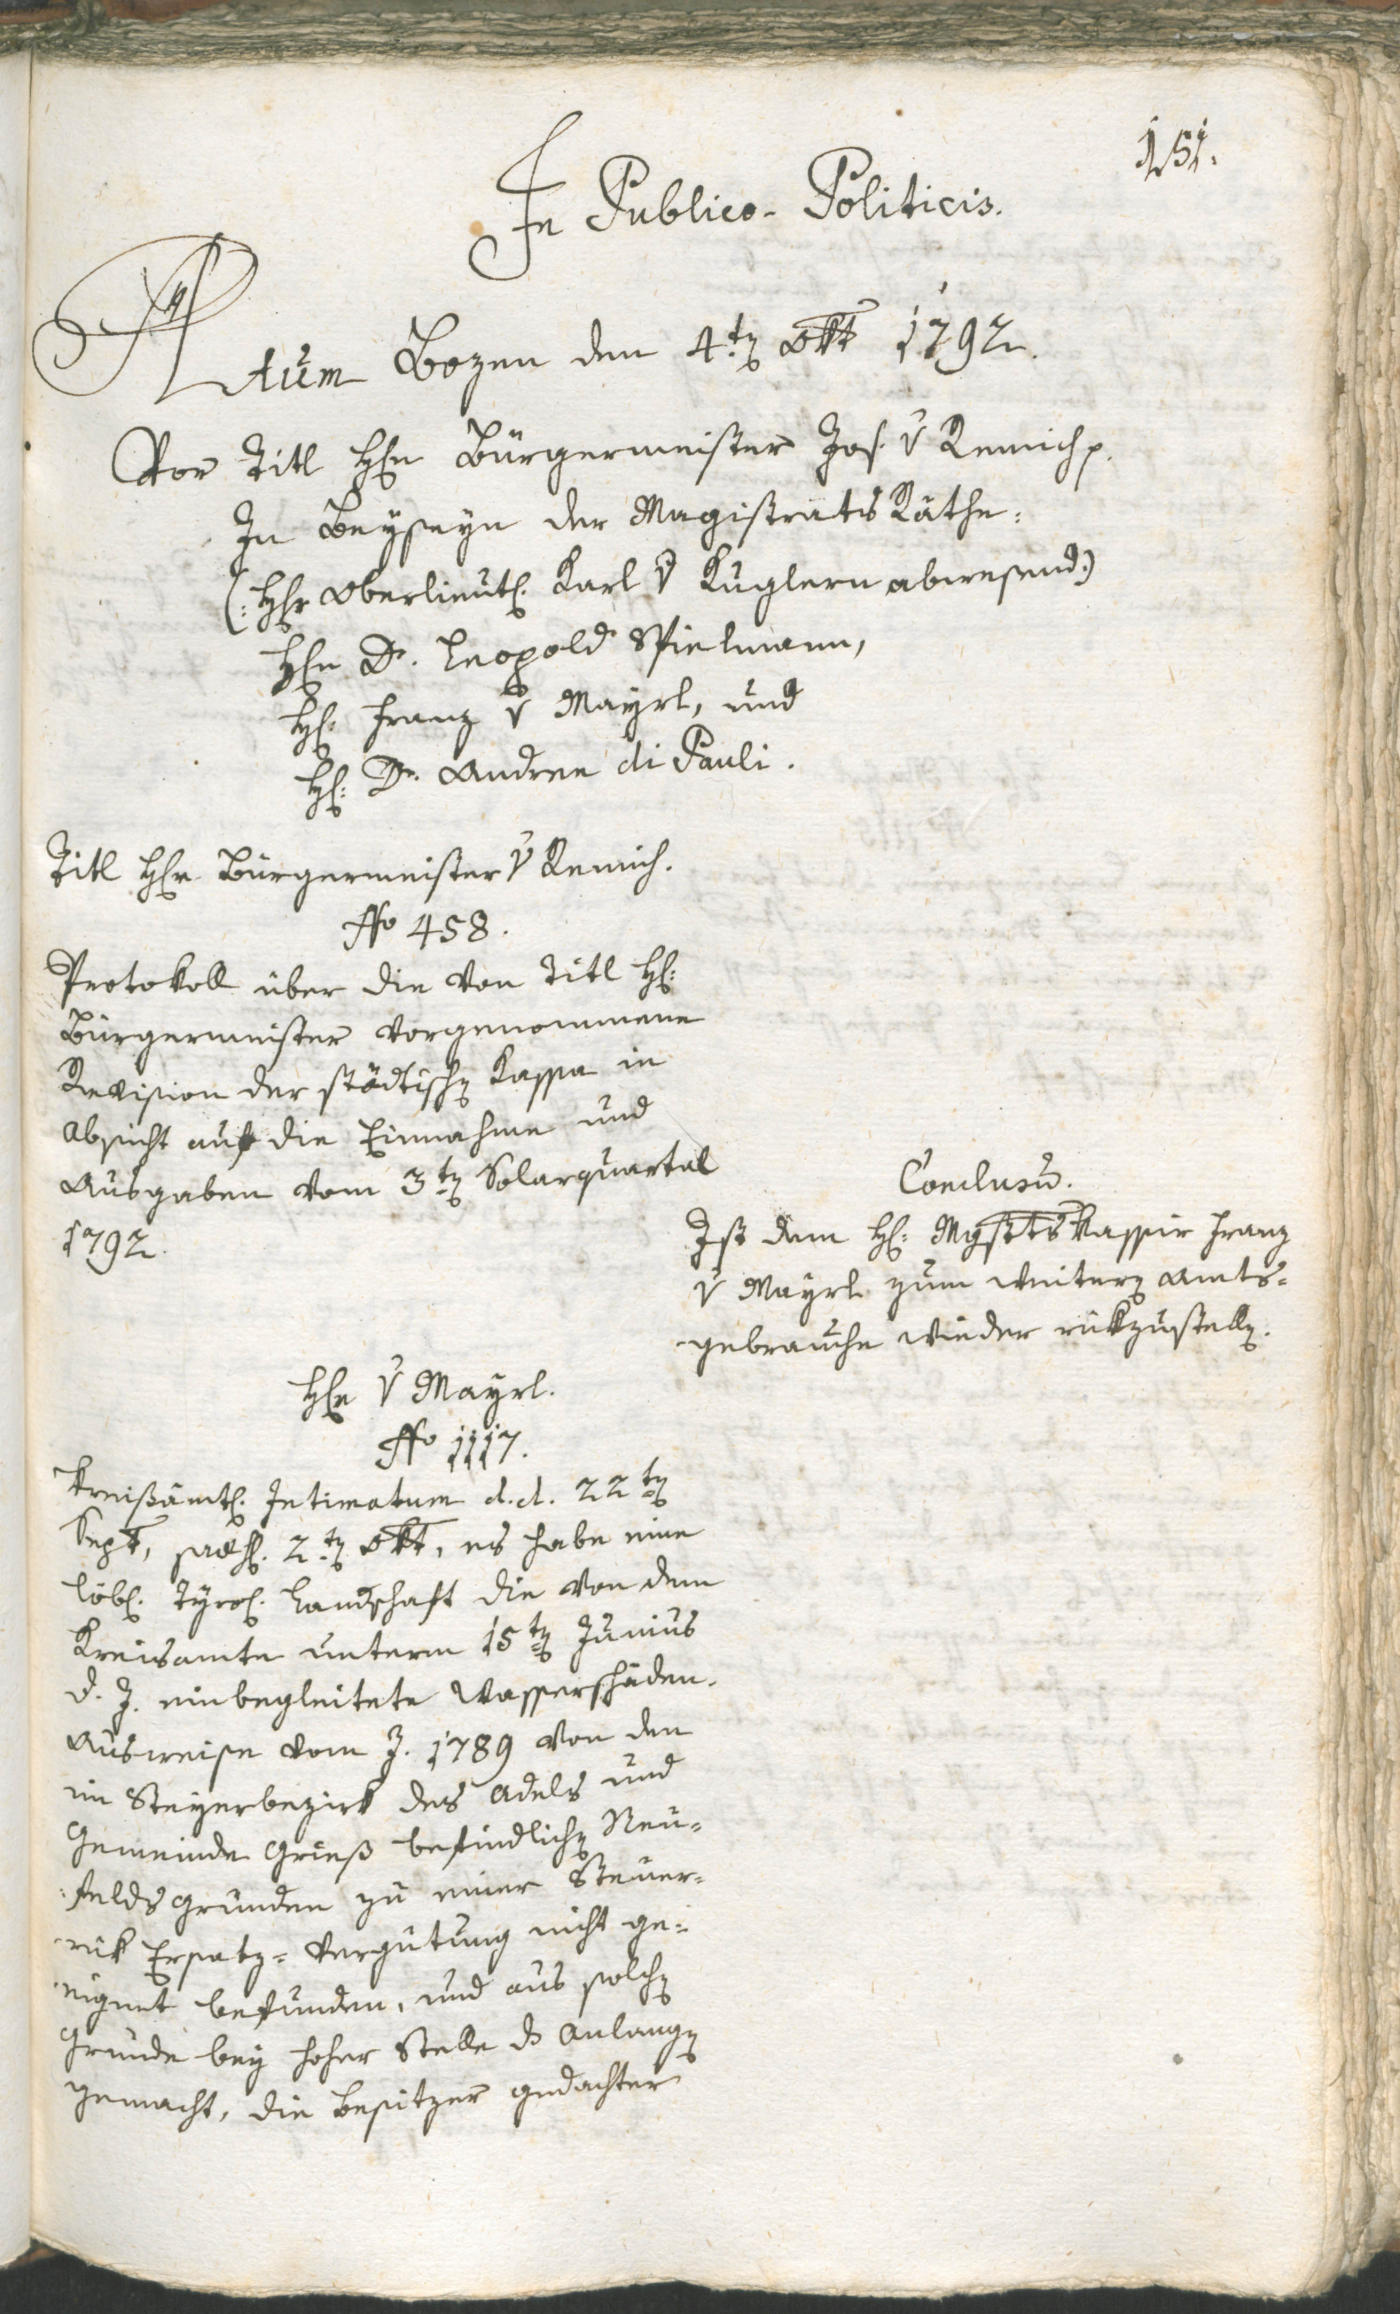 151.
In Publico-Politicis.
Actum Bozen den 4ten Okt 1792.
Vor Titl Hrn Bürgermeister Jos. v Remich p.
In Beyseyn der Magistrats Räthe:
(: Hr Oberlieut. Karl v Kuglern abwesend:)
Hrn Dr. Leopold Spielmann,
H: Franz v Mayrl, und
H: Dr. Andree di Pauli.
Titl Hr Bürgermeister v Remich.
No 458.
Protokoll über die von Titl H:
Bürgermeister vorgenommene
Revision der städtischen Kassa in
Absicht auf die Einnahme und
Ausgaben vom 3ten Solarquartal
1792.
Conclusū.
Ist dem H: Mgstts Kassier Franz
v Mayrl zum weitern Amts-
gebrauche wieder rükzustellen.
Hr v Mayrl.
No 1117.
Kreißämtl. Intimatum d.d. 22ten
Sept, 2ten Okt, es habe eine
löbl. Tyrol. Landschaft die von dem
Kreisamte unterm 15ten Junius
d. J. einbegleitete Wasserschäden-
Ausweise vom J. 1789 von den
im Steyerbezirk des Adels und
Gemeinde Grieß befindlichen Neu-
felds gründen zu einer Steuer-
rük Ersatz-Vergütung nicht ge-
eignet befunden, und aus solchen
Gründe bey hoher Stelle ds Anlangen
gemacht, die Besitzer gedachter